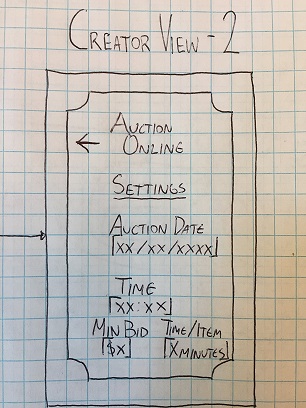 CREATOR VIEW - 2
AUCTION
ONLINE
SETTINGS
AUCTION DATE
XX/XX/XXXX
TIME
XX:XX
MIN BID TIME/ITEM
$X X MINUTES